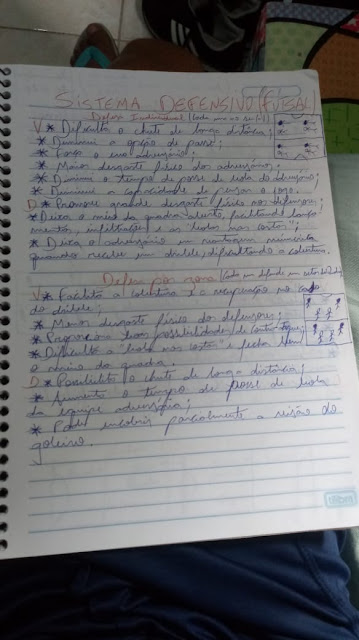 SISTEMA DEFENSIVO (FUTSAL)
Defesa Individual (Cada um no seu (-))
V * Dificulta o chute de longa distância;
* Diminui a opção de passe;
* Força o erro adversário;
* Maior desgaste físico dos adversários;
* Diminui o tempo de posse de bola do adversário;
* Diminui a capacidade de pensar o jogo.
D * Promove grande desgaste físico nos defensores;
* Deixa o meio da quadra aberto, facilitando lança-
mentos, infiltrações e as "bolas nas costas";
* Deixa o adversário em vantagem numérica
quando recebe um drible, dificultando a cobertura.
Defesa por zona (Cada um defende um setor
V * Facilita a cobertura e a recuperação no caso
de drible;
* Menor desgaste físico dos defensores;
* Proporciona boas possibilidades de contra-ataque;
* Dificulta a "bola nas costas" e fecha bem
o meio da quadra.
D * Possibilita o chute de longa distância;
* Aumenta o tempo de posse de bola
da equipe adversária;
* Pode encobrir parcialmente a visão do
goleiro.
tilibra